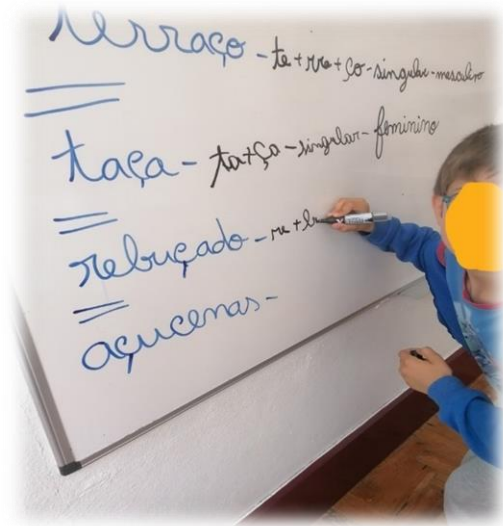 terraço - te + rra + ço - singular - masculino
taça - ta + ça - singular - feminino
rebuçado - re + bu
açucenas -